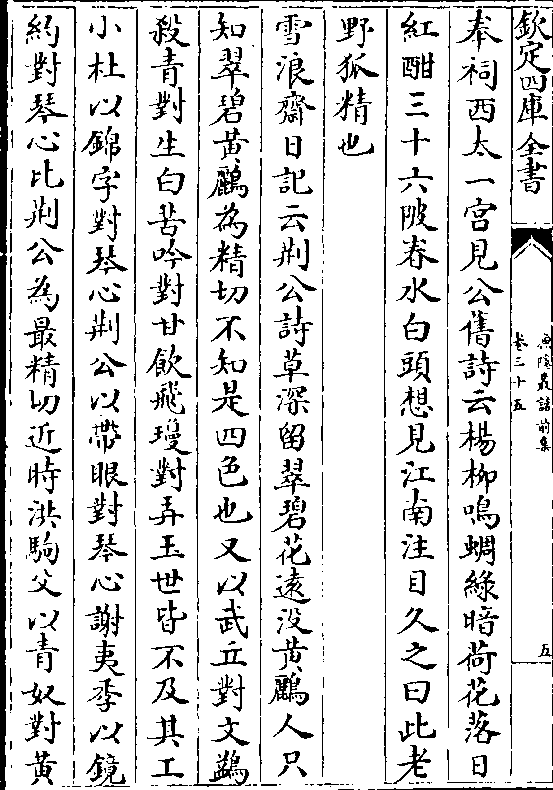 欽定四庫全書
漁隱叢話前集
卷三十五
五
奉祠西太一宮見公舊詩云楊柳鳴蜩綠暗荷花落日
紅酣三十六陂春水白頭想見江南注目久之曰此老
野狐精也
雪浪齋日記云荆公詩草深留翠碧花遠没黄鸝人只
知翠碧黄鸝為精切不知是四色也又以武丘對文鷁
殺青對生白苦吟對甘飲飛瓊對弄玉世皆不及其工
小杜以錦字對琴心荆公以帶眼對琴心謝夷季以鏡
約對琴心比荆公為最精切近時洪駒父以青奴對黄